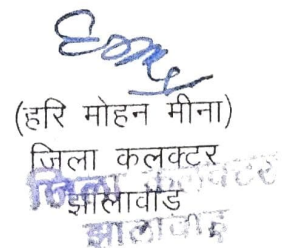 (हरि मोहन मीना)
जिला कलक्टर
झालावाड
जिला कलक्टर
झालावाड